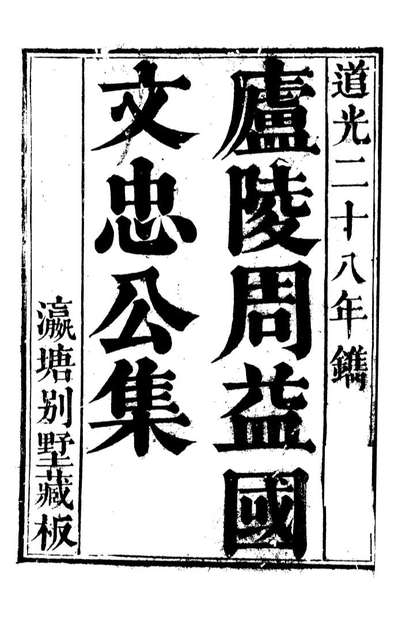 道光二十八年鐫
廬陵周益國
文忠公集
瀛塘别墅藏板